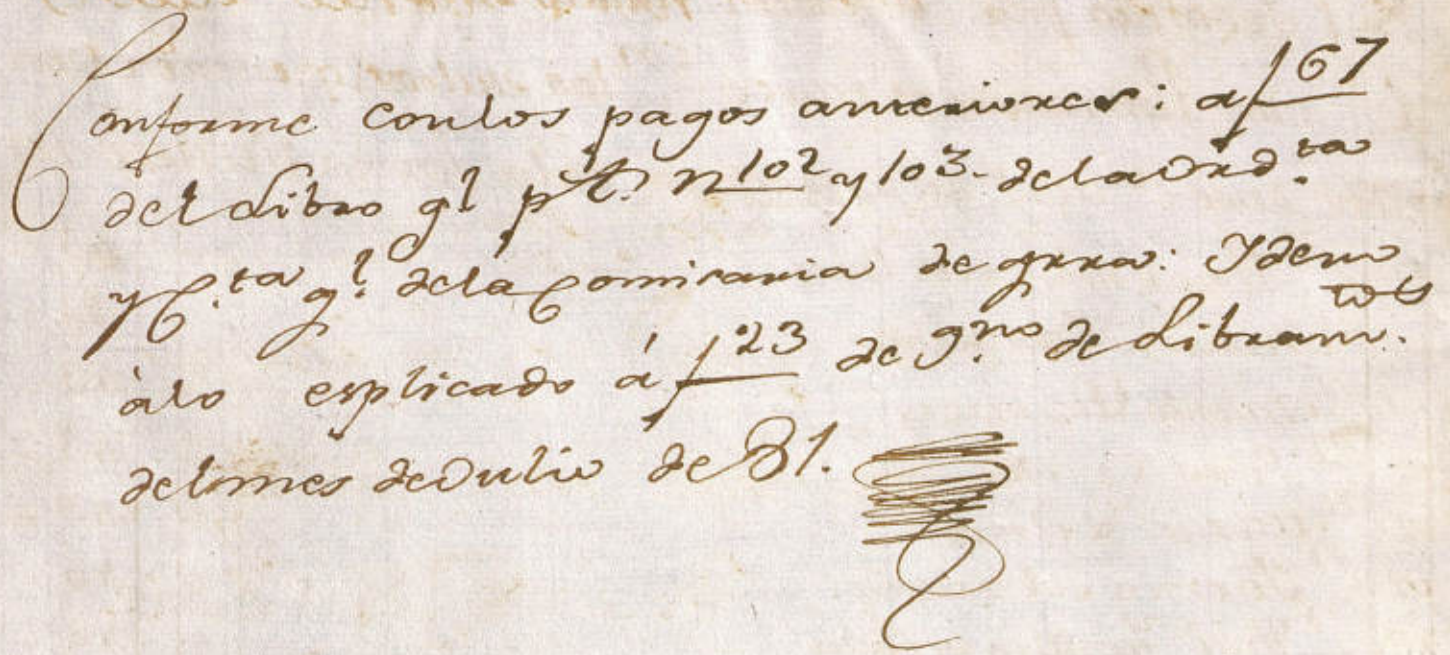 Conforme con los pagos anteriores: a f 67
del Libro gl pt. n 102 y 103. de la Ord.ta
y C.ta gl. de la Comisaria de grra: Ydem
à lo esplicado á f 23 de g.no de Libram.tos
del mes de Julio de 81.